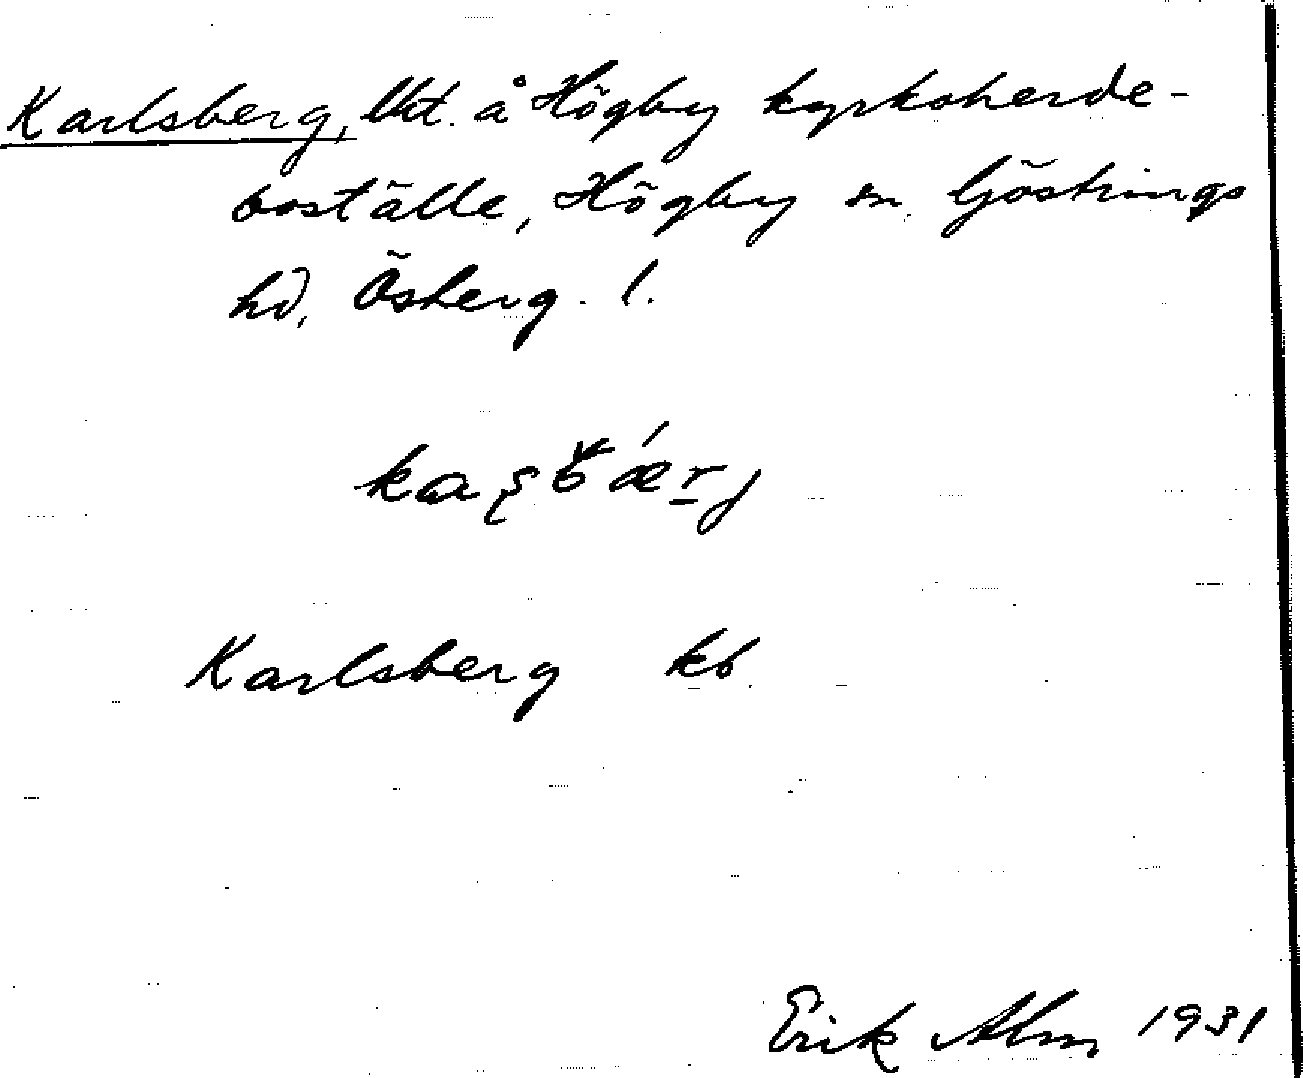 Karlsberg, lht. å Högby kyrkoherde-
boställe, Högby sn. Göstrings
hd, Österg. l.
Karlsberg kb
Erik Alm 1931